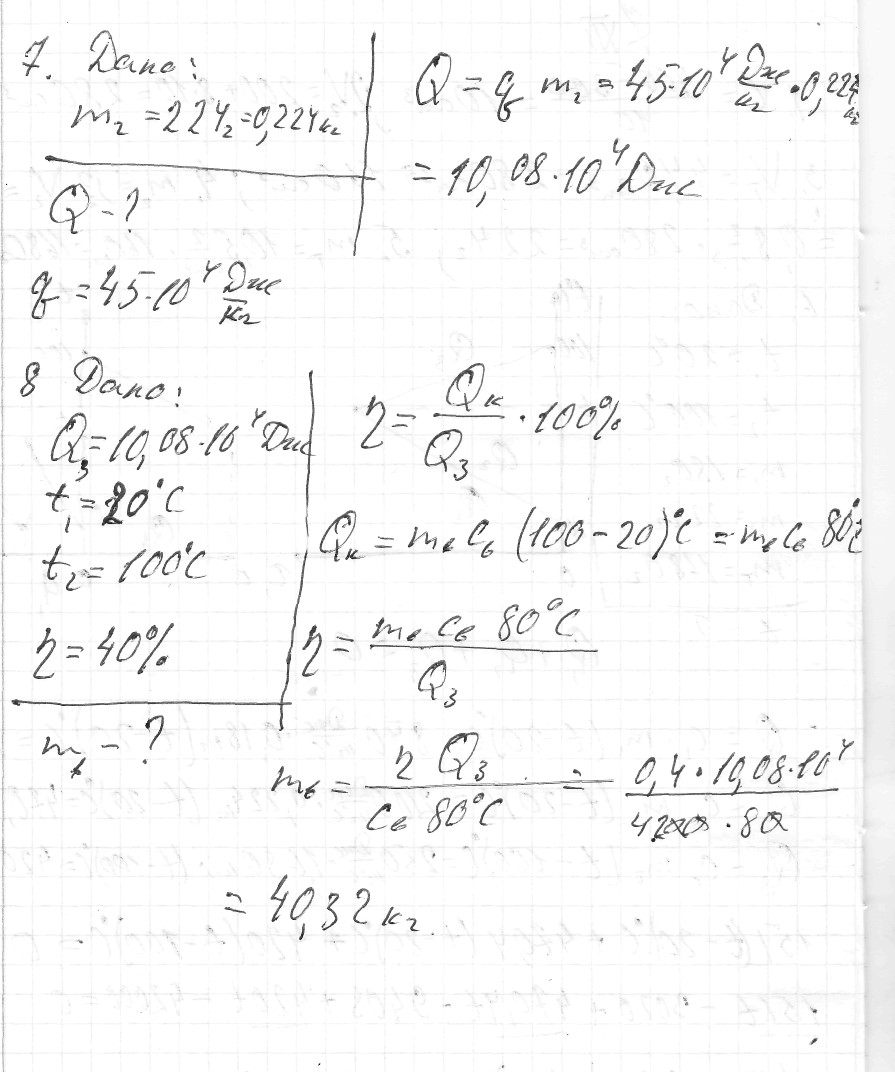 7. Дано:
m₂ = 224г = 0,224кг
Q - ?
q = 45·10⁴ Дж/кг
Q = q m₂ = 45·10⁴ Дж/кг · 0,224 кг
= 10,08·10⁴ Дж
8 Дано:
Q₃ = 10,08·10⁴ Дж
t₁ = 20°C
t₂ = 100°C
η = 40%
mв - ?
η = Qк/Q₃ · 100%
Qк = mв cв (100 - 20)°C = mв cв 80°C
η = mв cв 80°C / Q₃
mв = η Q₃ / cв 80°C = 0,4·10,08·10⁴ / 4200·80
= 40,32 кг